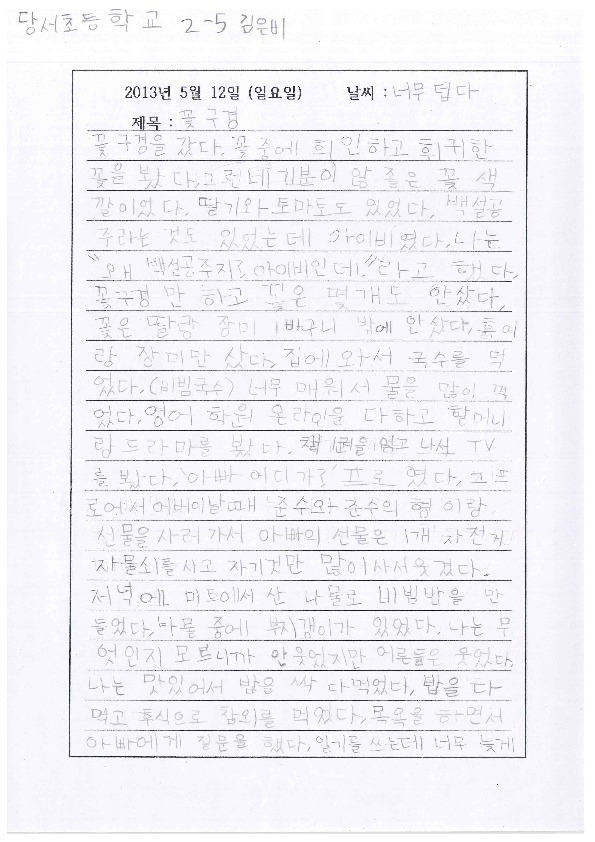 당서초등학교 2-5 김은비
2013년 5월 12일 (일요일) 날씨 : 너무 덥다
제목 : 꽃구경
꽃구경을 갔다. 꽃중에 희인하고 희귀한
꽃을 봤다. 그런데 기분이 않 좋은 꽃 색
깔이었다. 딸기와 토마토도 있었다. 백설공
주라는 것도 있었는데 아이비였다. 나는
"왜 백설공주지? 아이비인데."라고 했다.
꽃구경 만 하고 꽃은 몇개도 안샀다.
꽃은 딸랑 장미 1바구니 밖에 안샀다. 흙이
랑 장미만 샀다. 집에 와서 국수를 먹
었다. (비빔국수) 너무 매워서 물을 많이 먹
었다. 영어 학원 온라인을 다하고 할머니
랑 드라마를 봤다. 책 1권을 읽고 나서 TV
를 봤다. '아빠 어디가?' 프로 였다. 그프
로에서 어버이날때 준수와 준수의 형 이랑
선물을 사러가서 아빠의 선물은 1개 자전거
자물쇠를 사고 자기것만 많이사서 웃겼다.
저녁에 마트에서 산 나물로 비빔밥을 만
들었다. 나물 중에 부지갱이가 있었다. 나는 무
엇인지 모르니까 안웃었지만 어른들은 웃었다.
나는 맛있어서 밥을 싹 다먹었다. 밥을 다
먹고 후식으로 참외를 먹었다. 목욕을 하면서
아빠에게 질문을 했다. 일기를 쓰는데 너무 늦게